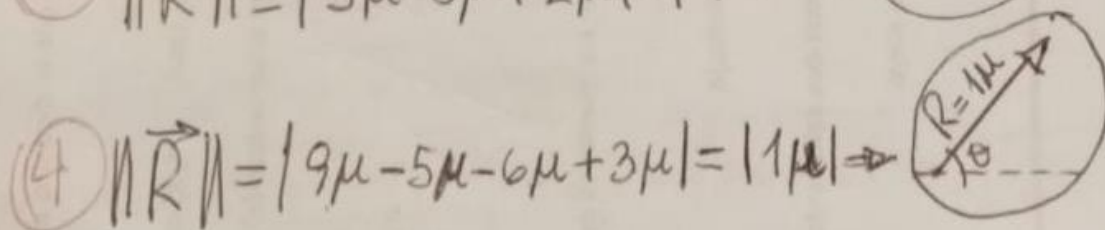 ④ ||R⃗|| = |9μ-5μ-6μ+3μ| = |1μ| ⇒ R=1μ θ